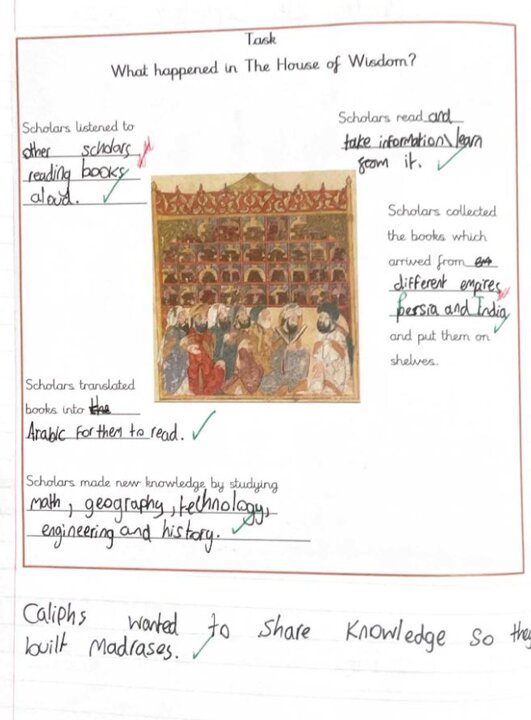 Task
What happened in The House of Wisdom?
Scholars listened to
other scholars
reading books
aloud.
Scholars read and
take information\learn
from it.
Scholars collected
the books which
arrived from
different empires
persia and India
and put them on
shelves.
Scholars translated
books into the
Arabic for them to read.
Scholars made new knowledge by studying
math, geography, technology,
engineering and history.
Caliphs wanted to share knowledge so they
built Madrases.